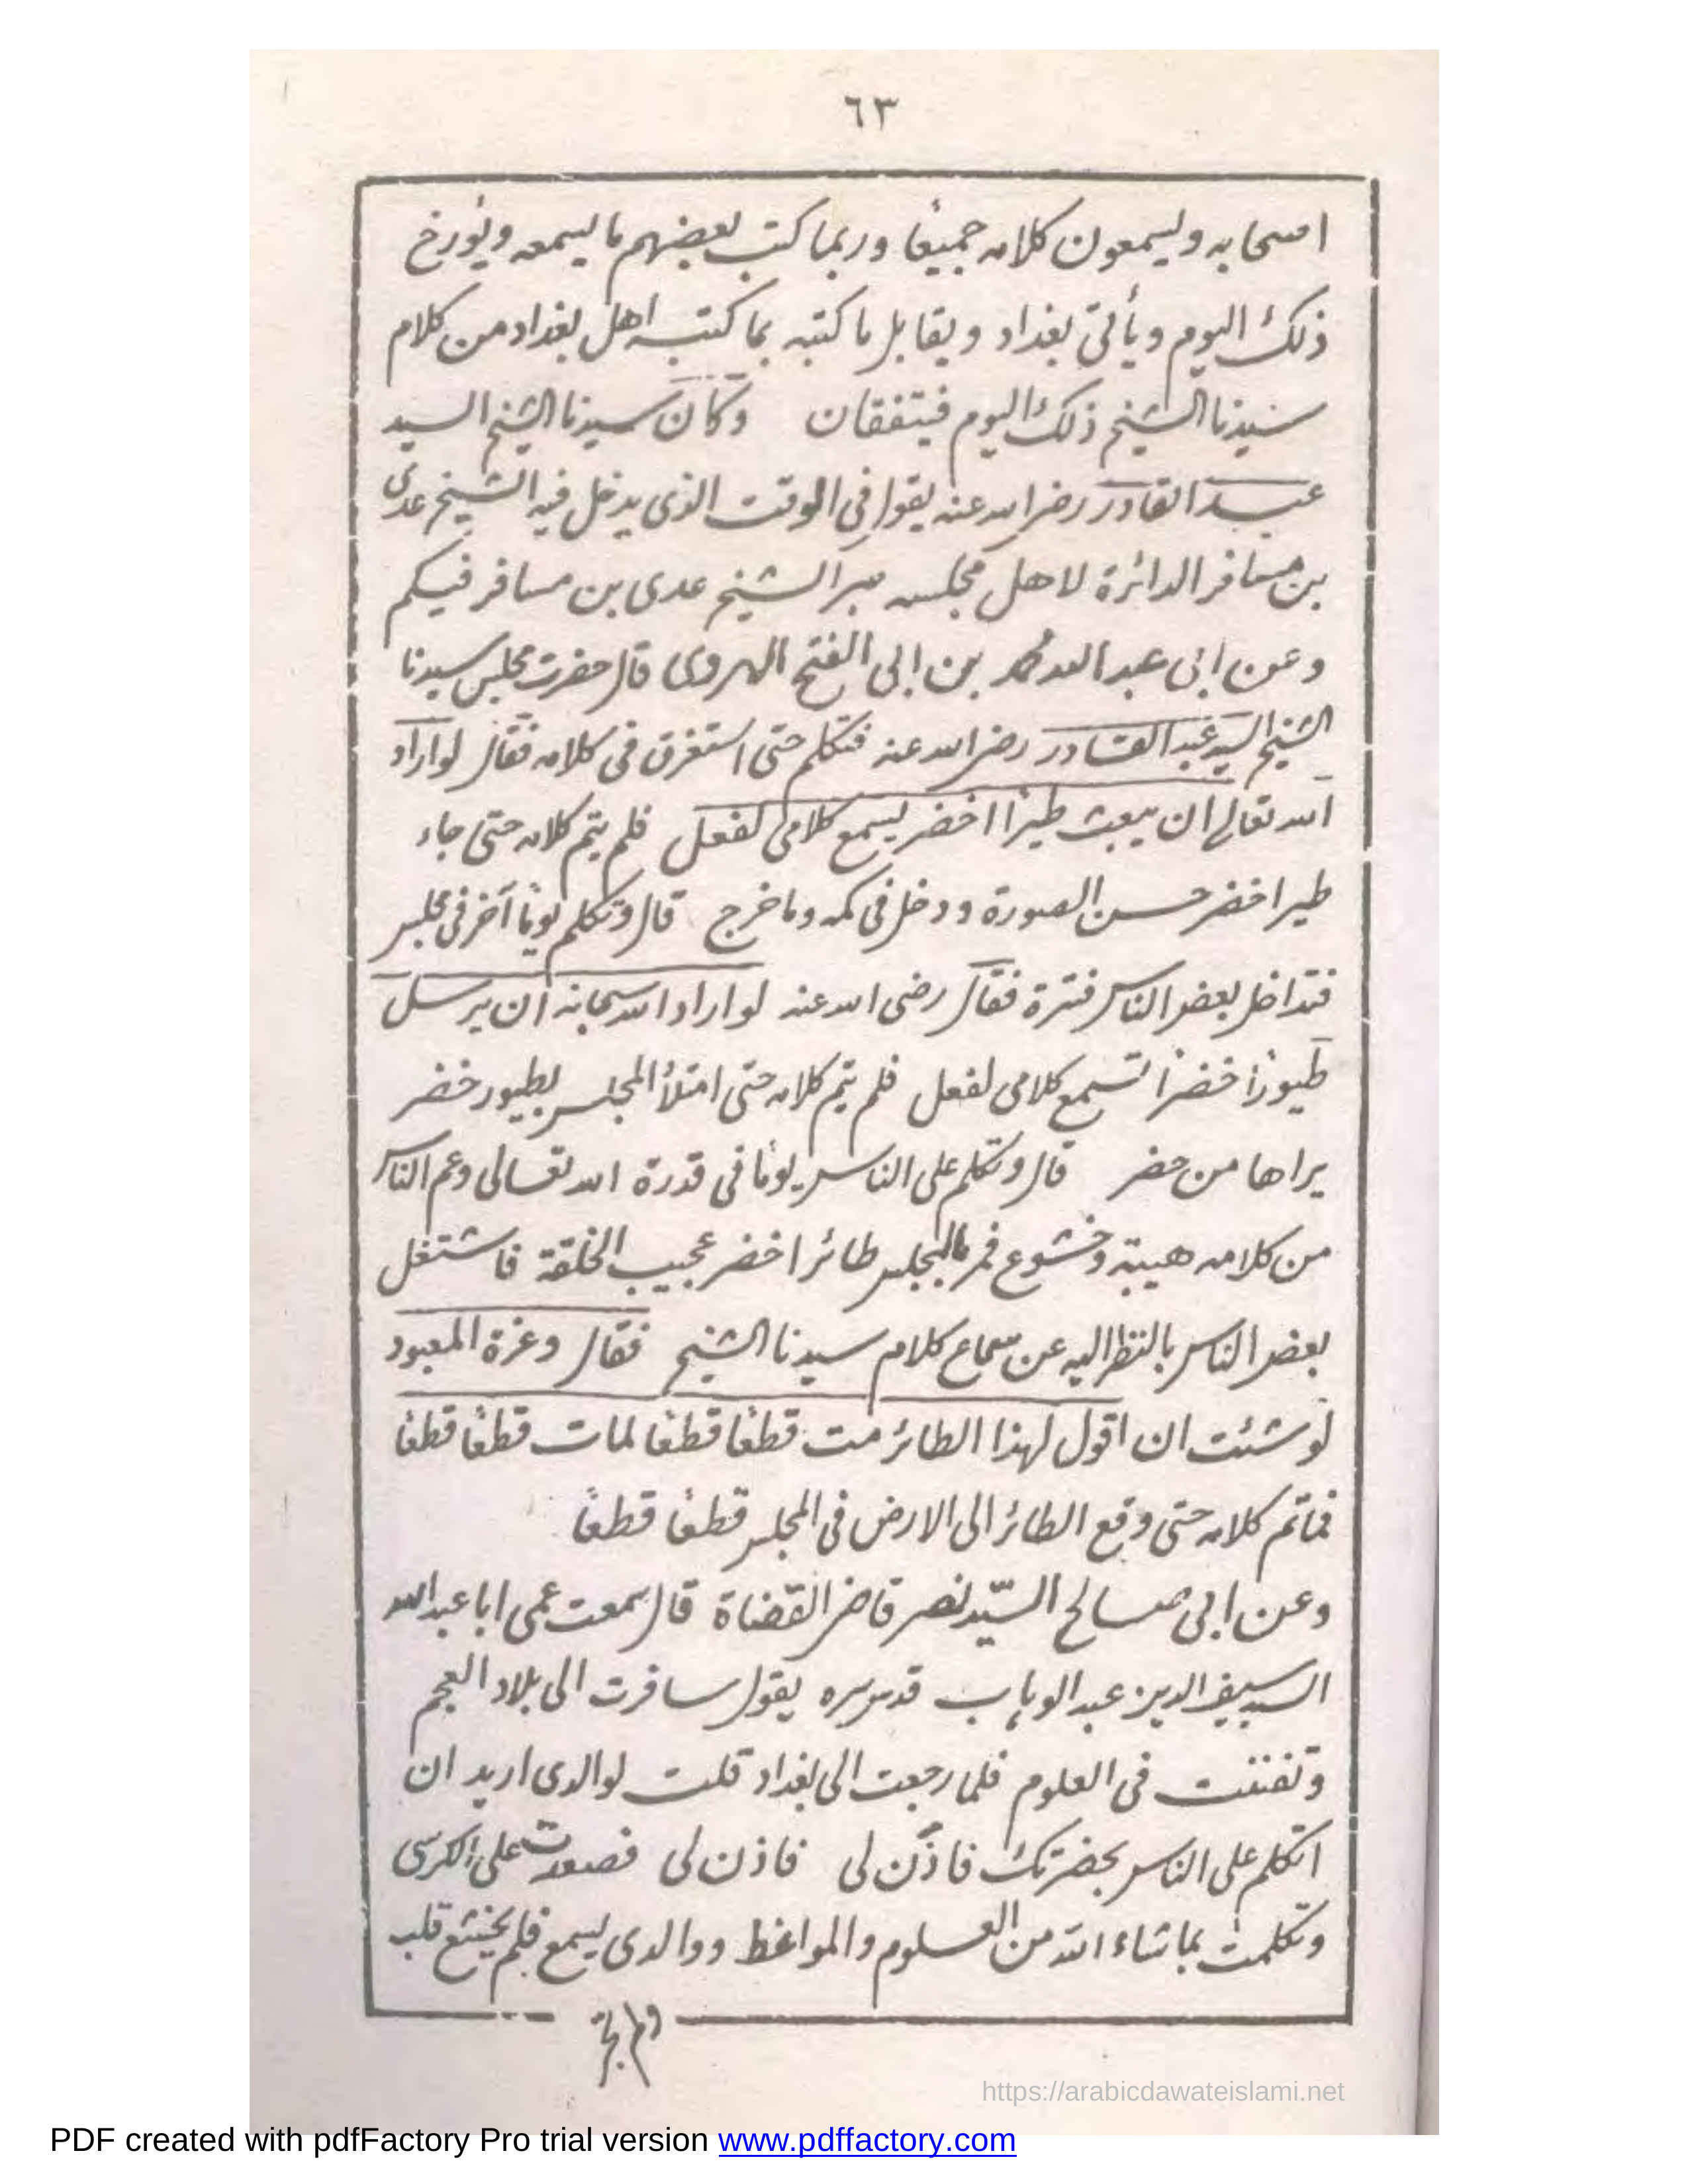 ٦٣
اصحابه ويسمعون كلامه جميعًا وربما كتب بعضهم ما يسمعه ويؤرخ
ذلك اليوم ويأتى بغداد ويقابل ما كتبه بما كتبه اهل بغداد من كلام
سيدنا الشيخ ذلك اليوم فيتفقان وكان سيدنا الشيخ السيد
عبد القادر رضى الله عنه يقول فى الوقت الذى يدخل فيه الشيخ عدى
بن مسافر الدائرة لاهل مجلسه عبر الشيخ عدى بن مسافر فيكم
وعن ابى عبد الله محمد بن ابى الفتح الهروى قال حضرت مجلس سيدنا
الشيخ السيد عبد القادر رضى الله عنه فتكلم حتى استغرق فى كلامه فقال لو اراد
الله تعالى ان يبعث طيرًا اخضر يسمع كلامى لفعل فلم يتم كلامه حتى جاء
طير اخضر حسن الصورة ودخل فى كمه وما خرج قال وتكلم يومًا آخر فى مجلس
فتداخل بعض الناس فترة فقال رضى الله عنه لو اراد الله سبحانه ان يرسل
طيورًا خضرًا تسمع كلامى لفعل فلم يتم كلامه حتى امتلأ المجلس بطيور خضر
يراها من حضر قال وتكلم على الناس يومًا فى قدرة الله تعالى وعم الناس
من كلامه هيبة وخشوع فمر بالمجلس طائر اخضر عجيب الخلقة فاشتغل
بعض الناس بالنظر اليه عن سماع كلام سيدنا الشيخ فقال وعزة المعبود
لو شئت ان اقول لهذا الطائر مت قطعًا قطعًا لمات قطعًا قطعًا
فماتم كلامه حتى وقع الطائر الى الارض فى المجلس قطعًا قطعًا
وعن ابى صالح السيّد نصر قاضى القضاة قال سمعت عمى ابا عبد الله
السيد سيف الدين عبد الوهاب قدس سره يقول سافرت الى بلاد العجم
وتفننت فى العلوم فلما رجعت الى بغداد قلت لوالدى اريد ان
اتكلم على الناس بحضرتك فأذن لى فاذن لى فصعدت على الكرسى
وتكلمت بما شاء الله من العلوم والمواعظ ووالدى يسمع فلم يخشع قلب
ولم تجر
https://arabicdawateislami.net
PDF created with pdfFactory Pro trial version www.pdffactory.com